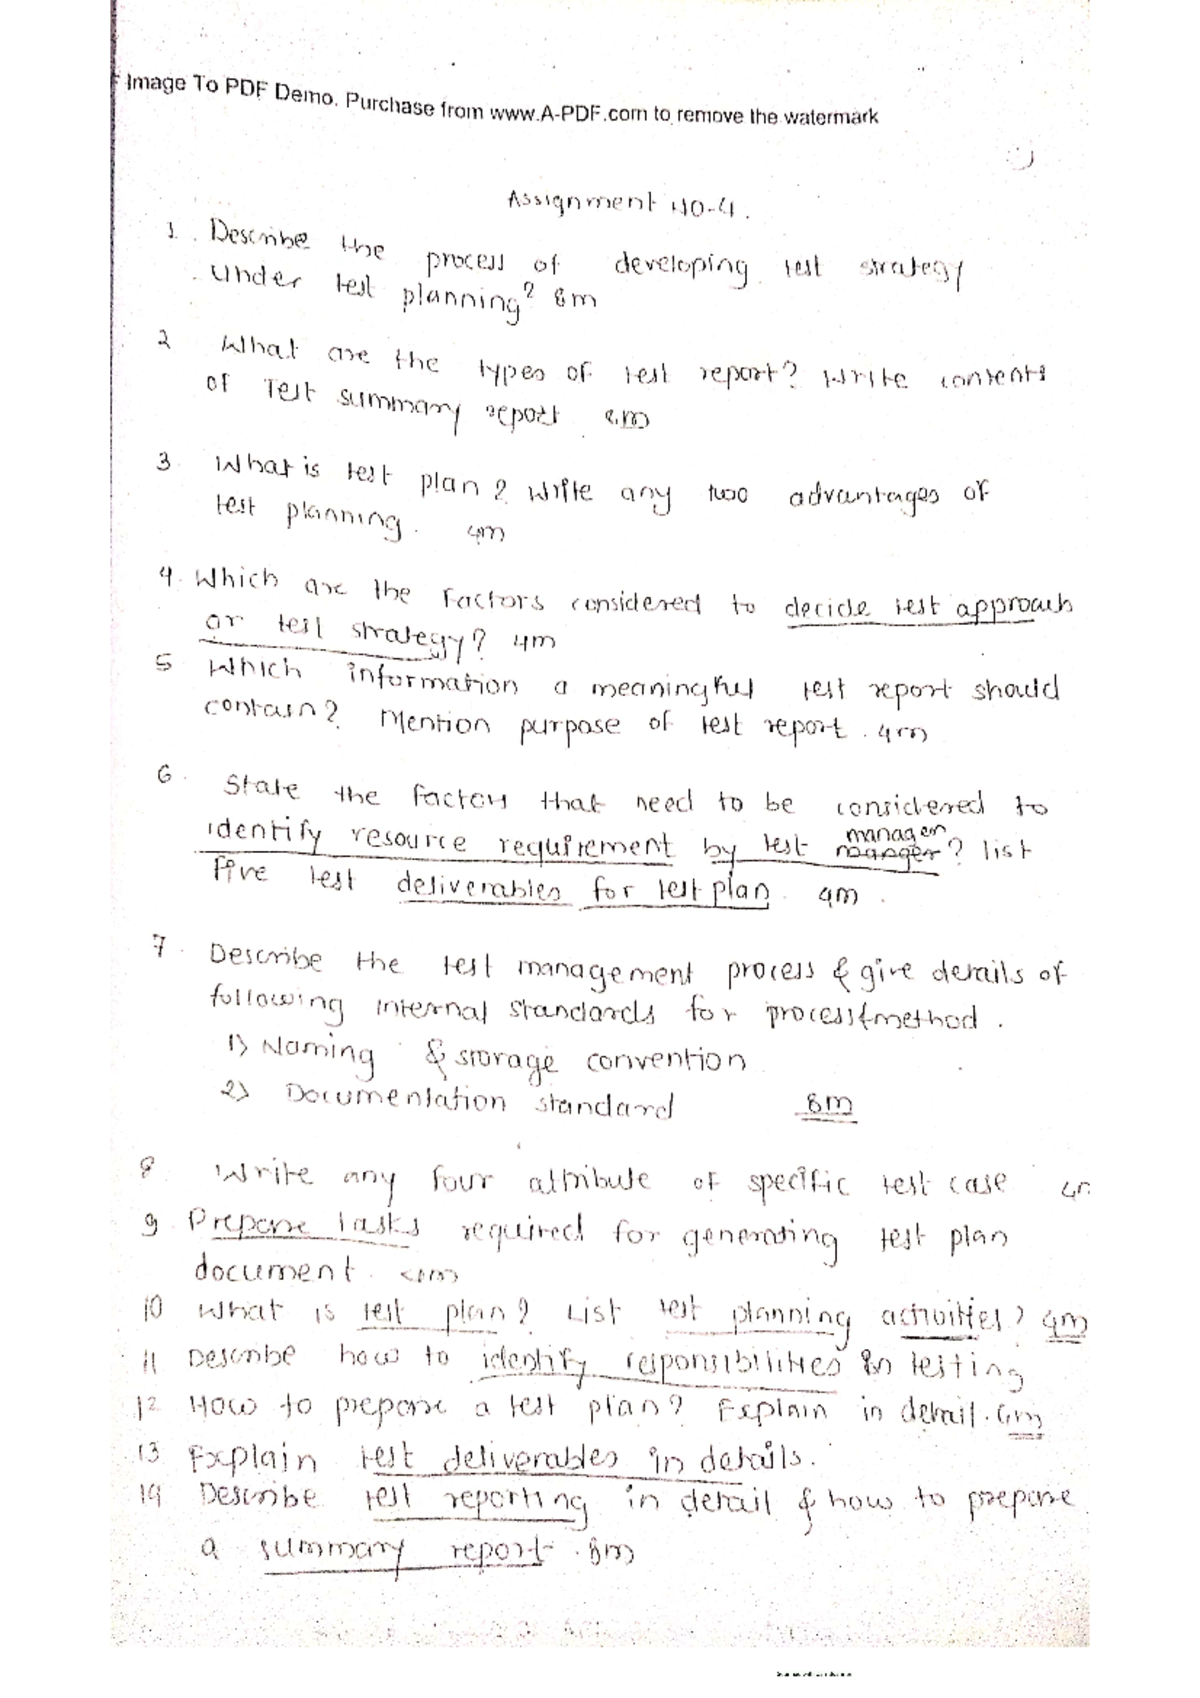 Image To PDF Demo. Purchase from www.A-PDF.com to remove the watermark
Assignment NO-4.
1. Describe the process of developing test strategy
under test planning? 8m
2 What are the types of test report? Write contents
of Test summary report 8m
3 What is test plan? Write any two advantages of
test planning. 4m
4. Which are the factors considered to decide test approach
or test strategy? 4m
5 Which information a meaningful test report should
contain? Mention purpose of test report. 4m
6. State the factors that need to be considered to
identify resource requirement by test manager? list
five test deliverables for test plan. 4m.
7. Describe the test management process & give details of
following internal standards for process & method.
1) Naming & storage convention
2) Documentation standard 8m
8 Write any four attribute of specific test case
9 Prepare tasks required for generating test plan
document. 4m
10 What is test plan? List test planning activities? 4m
11 Describe how to identify responsibilities in testing
12 How to prepare a test plan? Explain in detail. 4m
13 Explain test deliverables in details.
14 Describe test reporting in detail & how to prepare
a summary report. 8m